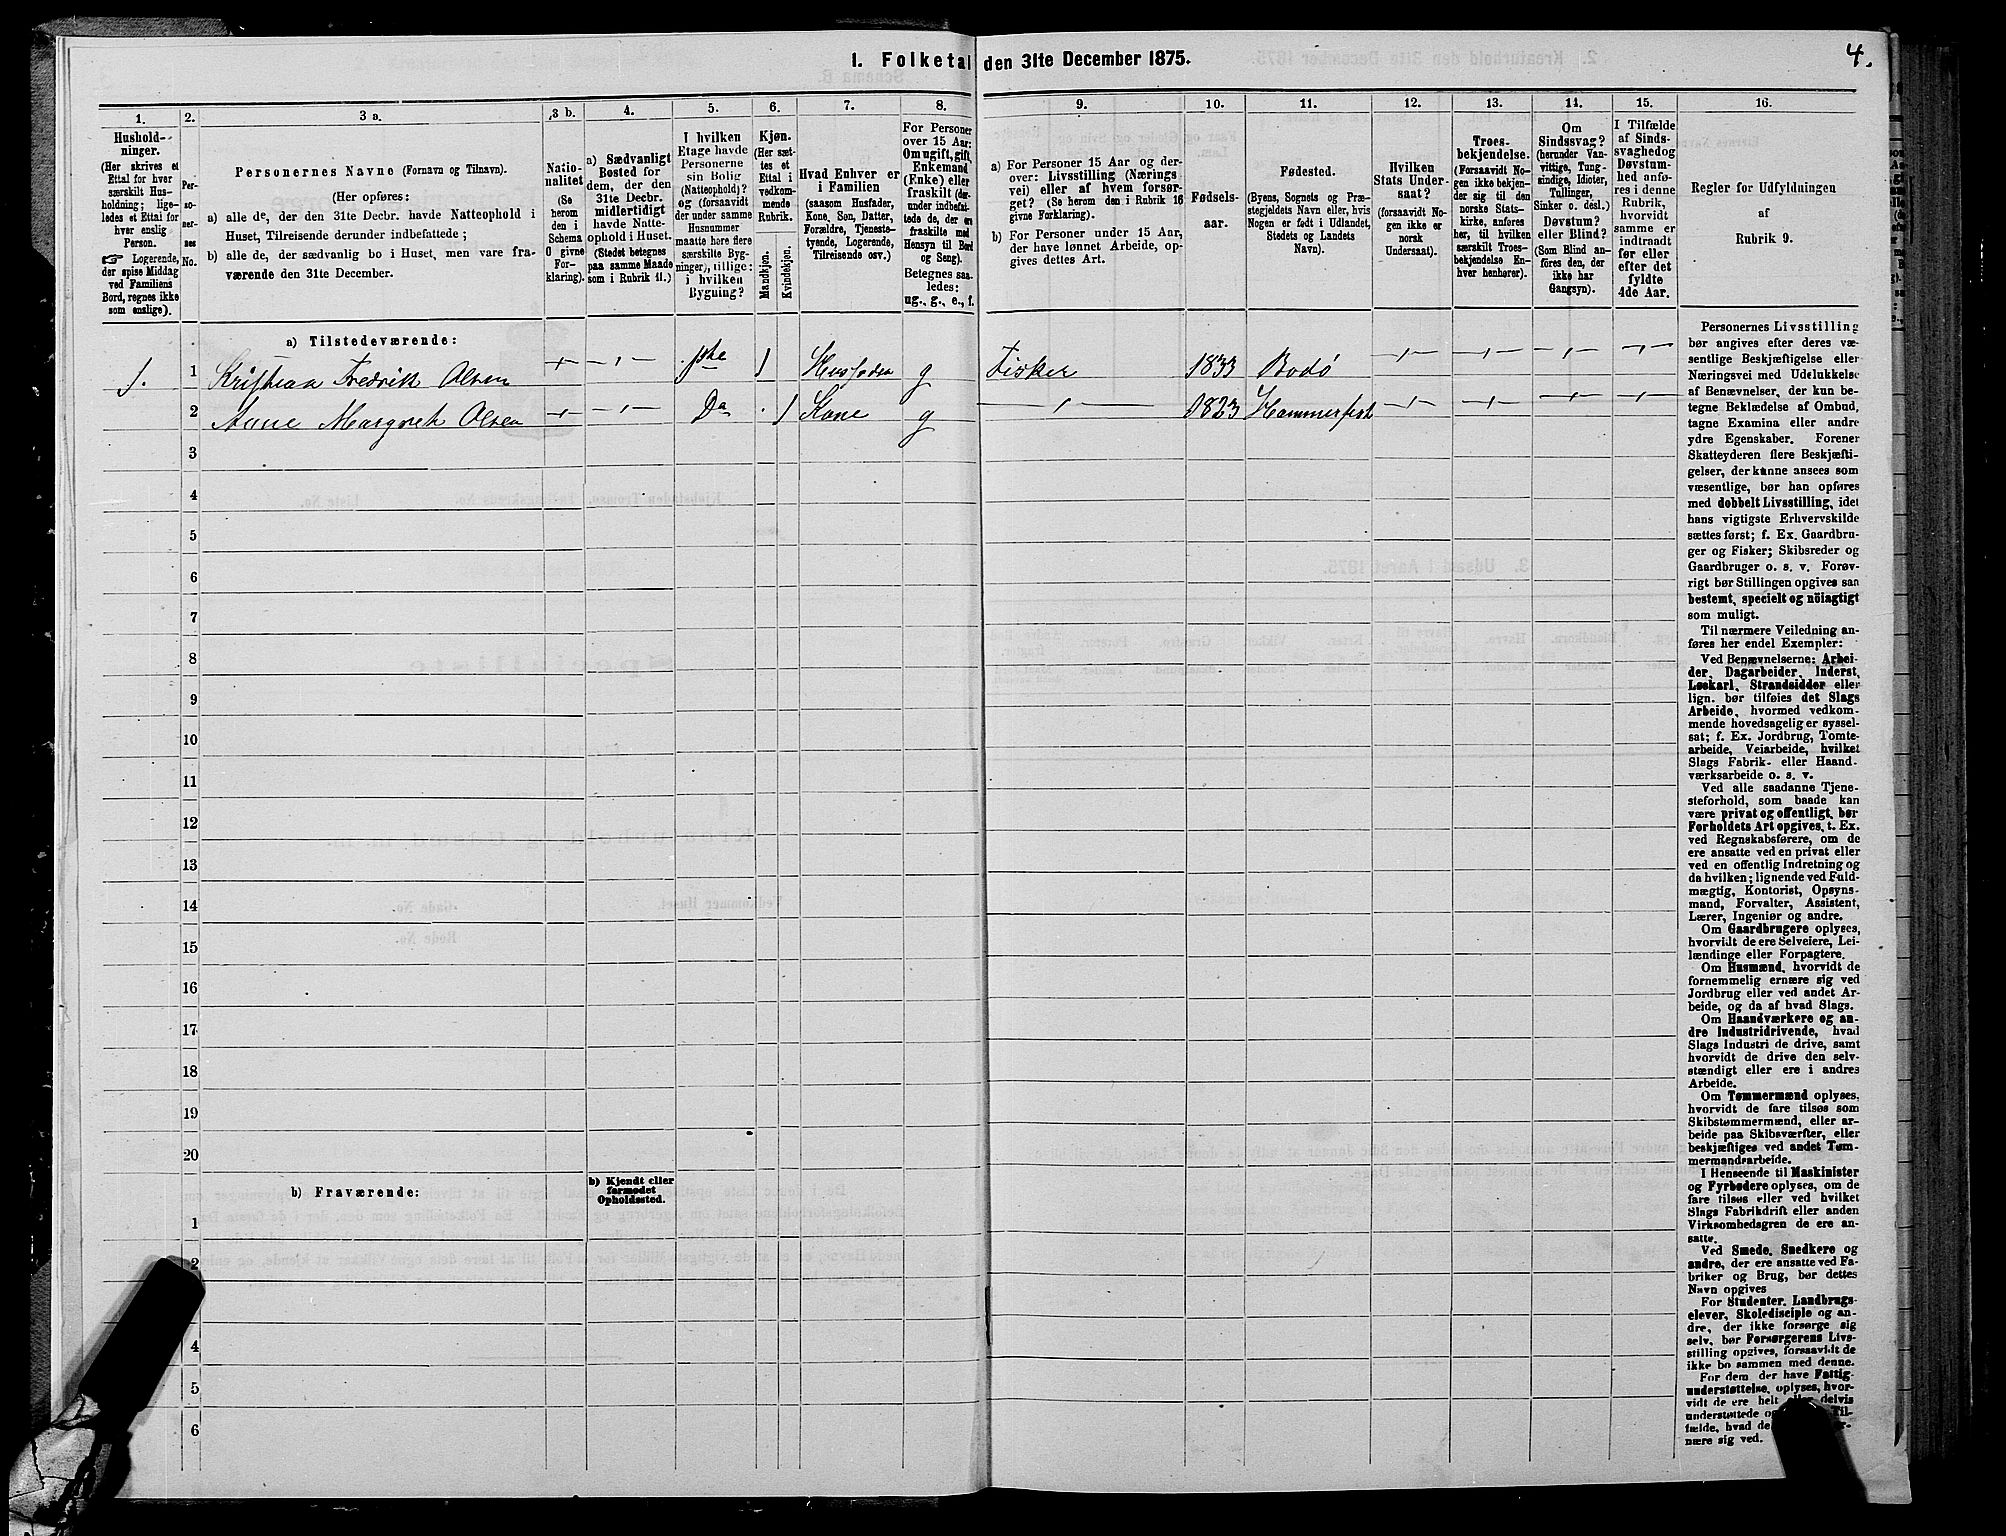 4.
1. Folketal den 31te December 1875.
1. 2. 3 a. 3 b. 4. 5. 6. 7. 8. 9. 10. 11. 12. 13. 14. 15. 16.
Hushold-
ninger.
(Her skrives et
Ettal for hver
særskilt Hus-
holdning; lige-
ledes et Ettal for
hver enslig
Person.
☞ Logerende,
der spise Middag
ved Familiens
Bord, regnes ikke
som enslige).
Per-
so-
ner-
nes
No.
Personernes Navne (Fornavn og Tilnavn).
(Her opføres:
a) alle de, der den 31te Decbr. havde Natteophold i
Huset, Tilreisende derunder indbefattede;
b) alle de, der sædvanlig bo i Huset, men vare fra-
værende den 31te December.
Natio-
nalitet
(Se
herom
den i
Schema
6 givne
For-
klaring).
a) Sædvanligt
Bosted for
dem, der den
31te Decbr.
midlertidigt
havde Natte-
ophold i Huset.
(Stedet betegnes
paa samme Maade
som i Rubrik 11.)
I hvilken
Etage havde
Personerne
sin Bolig
(Natteophold)?
og (forsaavidt
der under samme
Husnummer
maatte høre flere
særskilte Byg-
ninger), tillige:
i hvilken
Bygning?
Kjøn.
(Her sæt-
tes et
Ettal i
vedkom-
mende
Rubrik.
Mandkjøn.
Kvindekjøn.
Hvad Enhver er
i Familien
(saasom Husfader,
Kone, Søn, Datter,
Forældre, Tjeneste-
tyende, Logerende,
Tilreisende osv.)
For Personer
over 15 Aar:
Om ugift, gift,
Enkemand
(Enke) eller
fraskilt (der-
under indbefat-
tede de, der ere
fraskilte med
Hensyn til Bord
og Seng).
Betegnes saa-
ledes:
ug., g., e., f.
a) For Personer 15 Aar og der-
over: Livsstilling (Nærings
vei) eller af hvem forsør-
get? (Se herom den i Rubrik 16
givne Forklaring).
b) For Personer under 15 Aar,
der have lønnet Arbeide, op-
gives dettes Art.
Fødsels-
aar.
Fødested.
(Byens, Sognets og Præ-
stegjeldets Navn eller, hvis
Nogen er født i Udlandet,
Stedets og Landets
Navn).
Hvilken
Stats Under-
saat?
(forsaavidt No-
gen ikke er
norsk
Undersaat).
Troes-
bekjendelse.
(Forsaavidt No-
gen ikke bekjen-
der sig til den
norske Stats-
kirke, anføres
her, til hvilken
særskilt Troes-
bekjendelse En-
hver henhører).
Om
Sindssvag?
(herunder Van-
vittige, Tung-
sindige, Idioter,
Tullinger,
Sinker o. desl.)
Døvstum?
eller Blind?
(Som Blind an-
føres den, der
ikke har
Gangsyn).
I Tilfælde
af Sinds-
svaghed og
Døvstum-
hed anfø-
res i denne
Rubrik,
hvorvidt
samme er
indtraadt
før eller
efter det
fyldte
4de Aar.
Regler for Udfyldningen
af
Rubrik 9.
a) Tilstedeværende:
1. 1 Kristian Fredrik Olsen 1ste 1 Husfader g Fisker 1833 Bodø
2 Anne Margreth Olsen Do 1 Kone g 1823 Hammerfest
3
4
5
6
7
8
9
10
11
12
13
14
15
16
17
18
19
20
b) Fraværende:
b) Kjendt eller
formodet
Opholdssted.
1
2
4
5
6
Personernes Livsstilling
bør angives efter deres væ-
sentlige Beskjæftigelse eller
Næringsvei med Udelukkelse
af Benævnelser, der kun be-
tegne Beklædelse af Ombud,
tagne Examina eller andre
ydre Egenskaber. Forener
Skatteyderen flere Beskjæfti-
gelser, der kunne ansees som
væsentlige, bør han opføres
med dobbelt Livsstilling, idet
hans vigtigste Erhvervskilde
sættes først; f. Ex. Gaardbru-
ger og Fisker; Skibsreder og
Gaardbruger o. s. v. Forøv-
rigt bør Stillingen opgives saa
bestemt, specielt og nöiagtigt
som muligt.
Til nærmere Veiledning an-
føres her endel Exempler:
Ved Benævnelserne: Arbei-
der, Dagarbeider, Inderst,
Løskarl, Strandsidder eller
lign. bør tilføies det Slags
Arbeide, hvormed vedkom-
mende hovedsagelig er syssel-
sat; f. Ex. Jordbrug, Tomte-
arbeide, Veiarbeide, hvilket
Slags Fabrik- eller Haand-
værksarbeide o. s. v.
Ved alle saadanne Tjene-
steforhold, som baade kan
være privat og offentligt, bør
Forholdets Art opgives, t. Ex.
ved Regnskabsførere, om de
ere ansatte ved en privat eller
ved en offentlig Indretning og
da hvilken; lignende ved Fuld-
mægtig, Kontorist, Opsyns-
mand, Forvalter, Assistent,
Lærer, Ingeniør og andre.
Om Gaardbrugere oplyses,
hvorvidt de ere Selveiere, Lei-
lændinge eller Forpagtere.
Om Husmænd, hvorvidt de
fornemmelig ernære sig ved
Jordbrug eller ved andet Ar-
beide, og da af hvad Slags.
Om Haandværkere og an-
dre Industridrivende, hvad
Slags Industri de drive, samt
hvorvidt de drive den selv-
stændigt eller ere i andres
Arbeide.
Om Tømmermænd oplyses,
hvorvidt de fare tilsøs som
Skibstømmermænd, eller ar-
beide paa Skibsværfter, eller
beskjæftiges ved andet Tøm-
mermandsarbeide.
I Henseende til Maskinister
og Fyrbødere oplyses, om de
fare tilsøs eller ved hvilket
Slags Fabrikdrift eller anden
Virksomhedsgren de ere an-
satte.
Ved Smede, Snedkere og
andre, der ere ansatte ved Fa-
briker og Brug, bør dettes
Navn opgives
For Studenter, Landbrugs-
elever, Skoledisciple og an-
dre, der ikke forsørge sig
selv, bør Forsørgerens Livs-
stilling opgives, forsaavidt de
ikke bo sammen med denne.
For dem, der have Fattig-
understøttelse, oplyses, hvor-
vidt de ere helt eller delvis
understøttede og Til-
fælde, hvad de
nære sig ved.